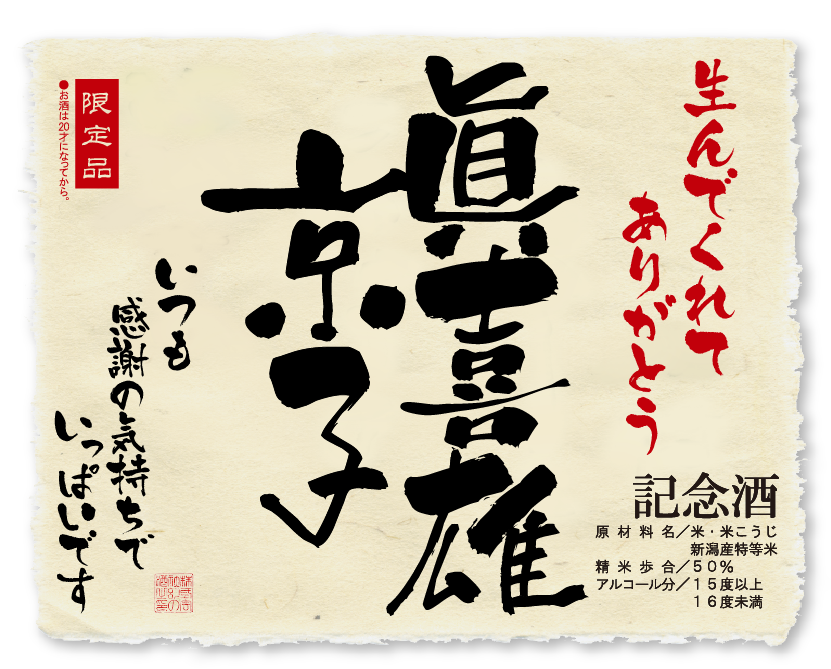 生んでくれて
ありがとう
眞喜雄
京子
いつも
感謝の気持ちで
いっぱいです
限定品
●お酒は20才になってから。
記念酒
原材料名／米・米こうじ
新潟産特等米
精米歩合／50％
アルコール分／15度以上
16度未満